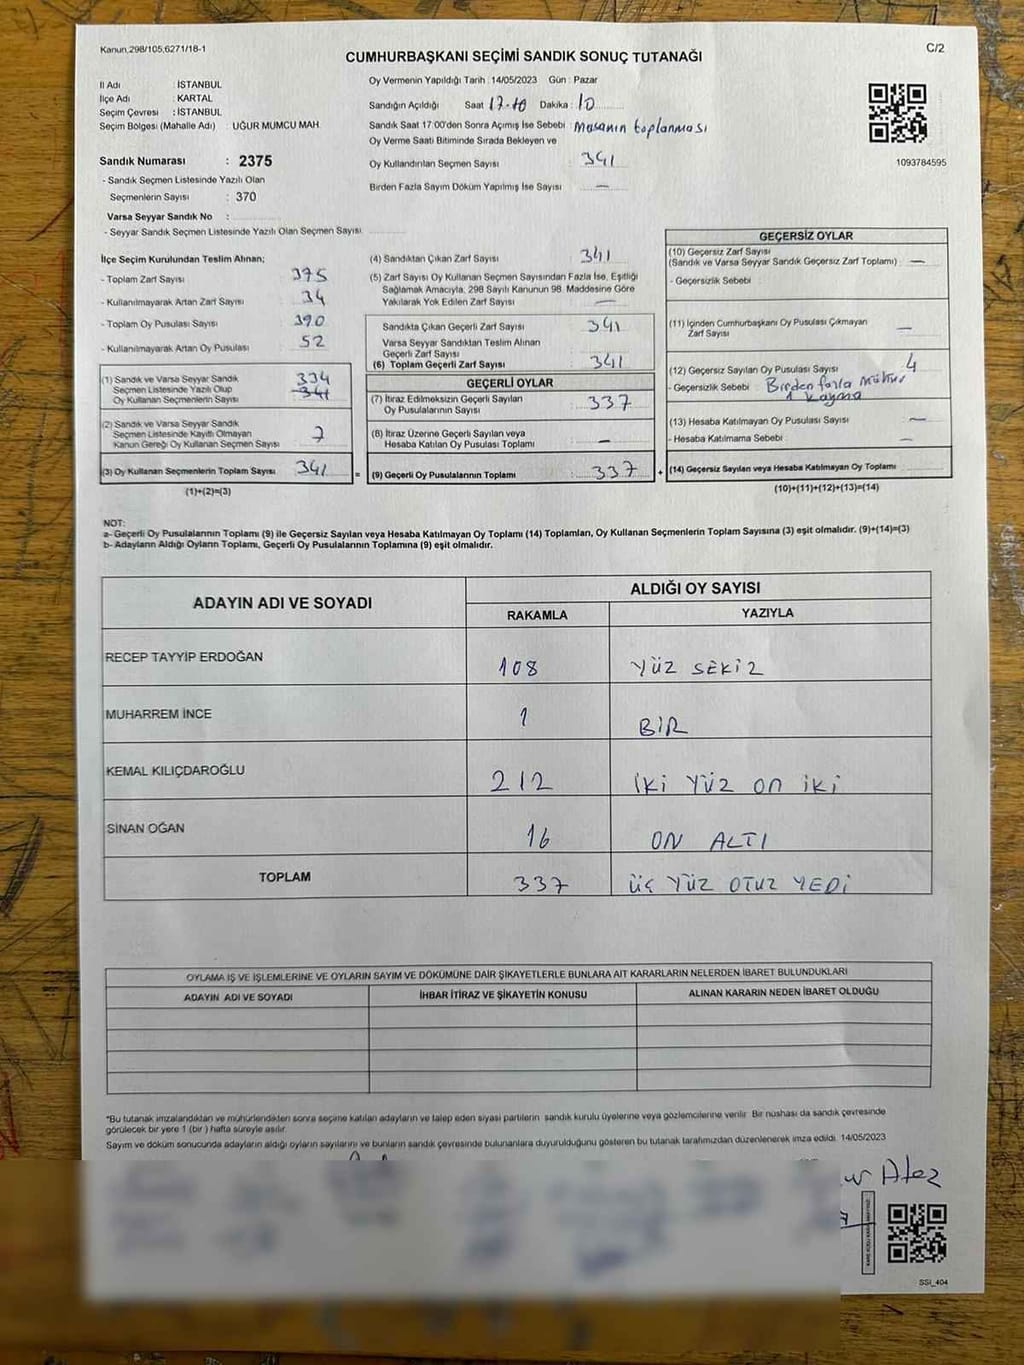 Kanun,298/105,6271/18-1
C/2
CUMHURBAŞKANI SEÇİMİ SANDIK SONUÇ TUTANAĞI
İl Adı : İSTANBUL
İlçe Adı : KARTAL
Seçim Çevresi : İSTANBUL
Seçim Bölgesi (Mahalle Adı) : UĞUR MUMCU MAH.
Sandık Numarası : 2375
- Sandık Seçmen Listesinde Yazılı Olan
Seçmenlerin Sayısı : 370
Varsa Seyyar Sandık No :
- Seyyar Sandık Seçmen Listesinde Yazılı Olan Seçmen Sayısı
Oy Vermenin Yapıldığı Tarih : 14/05/2023 Gün : Pazar
Sandığın Açıldığı Saat 17.10 Dakika : 10
Sandık Saat 17:00'den Sonra Açımış İse Sebebi : Masanın toplanması
Oy Verme Saati Bitiminde Sırada Bekleyen ve
Oy Kullandırılan Seçmen Sayısı : 341
Birden Fazla Sayım Döküm Yapılmış İse Sayısı : —
1093784595
İlçe Seçim Kurulundan Teslim Alınan;
- Toplam Zarf Sayısı : 375
- Kullanılmayarak Artan Zarf Sayısı : 34
- Toplam Oy Pusulası Sayısı : 390
- Kullanılmayarak Artan Oy Pusulası : 52
(1) Sandık ve Varsa Seyyar Sandık 334
Seçmen Listesinde Yazılı Olup 341
Oy Kullanan Seçmenlerin Sayısı
(2) Sandık ve Varsa Seyyar Sandık
Seçmen Listesinde Kayıtlı Olmayan 7
Kanun Gereği Oy Kullanan Seçmen Sayısı
(3) Oy Kullanan Seçmenlerin Toplam Sayısı 341 =
(1)+(2)=(3)
(4) Sandıktan Çıkan Zarf Sayısı : 341
(5) Zarf Sayısı Oy Kullanan Seçmen Sayısından Fazla İse, Eşitliği
Sağlamak Amacıyla, 298 Sayılı Kanunun 98. Maddesine Göre
Yakılarak Yok Edilen Zarf Sayısı : —
Sandıkta Çıkan Geçerli Zarf Sayısı : 341
Varsa Seyyar Sandıktan Teslim Alınan
Geçerli Zarf Sayısı
(6) Toplam Geçerli Zarf Sayısı : 341
GEÇERLİ OYLAR
(7) İtiraz Edilmeksizin Geçerli Sayılan
Oy Pusulalarının Sayısı : 337
(8) İtiraz Üzerine Geçerli Sayılan veya
Hesaba Katılan Oy Pusulası Toplamı : —
(9) Geçerli Oy Pusulalarının Toplamı : 337 +
GEÇERSİZ OYLAR
(10) Geçersiz Zarf Sayısı
(Sandık ve Varsa Seyyar Sandık Geçersiz Zarf Toplamı) : —
- Geçersizlik Sebebi :
(11) İçinden Cumhurbaşkanı Oy Pusulası Çıkmayan
Zarf Sayısı : —
(12) Geçersiz Sayılan Oy Pusulası Sayısı : 4
- Geçersizlik Sebebi : Birden fazla mühür
1 kayma
(13) Hesaba Katılmayan Oy Pusulası Sayısı : —
Hesaba Katılmama Sebebi : —
(14) Geçersiz Sayılan veya Hesaba Katılmayan Oy Toplamı
(10)+(11)+(12)+(13)=(14)
NOT:
a- Geçerli Oy Pusulalarının Toplamı (9) ile Geçersiz Sayılan veya Hesaba Katılmayan Oy Toplamı (14) Toplamları, Oy Kullanan Seçmenlerin Toplam Sayısına (3) eşit olmalıdır. (9)+(14)=(3)
b- Adayların Aldığı Oyların Toplamı, Geçerli Oy Pusulalarının Toplamına (9) eşit olmalıdır.
ADAYIN ADI VE SOYADI
ALDIĞI OY SAYISI
RAKAMLA YAZIYLA
RECEP TAYYİP ERDOĞAN 108 YÜZ SEKİZ
MUHARREM İNCE 1 BİR
KEMAL KILIÇDAROĞLU 212 İKİ YÜZ ON İKİ
SİNAN OĞAN 16 ON ALTI
TOPLAM 337 ÜÇ YÜZ OTUZ YEDİ
OYLAMA İŞ VE İŞLEMLERİNE VE OYLARIN SAYIM VE DÖKÜMÜNE DAİR ŞİKAYETLERLE BUNLARA AİT KARARLARIN NELERDEN İBARET BULUNDUKLARI
ADAYIN ADI VE SOYADI İHBAR İTİRAZ VE ŞİKAYETİN KONUSU ALINAN KARARIN NEDEN İBARET OLDUĞU
*Bu tutanak imzalandıktan ve mühürlendikten sonra seçime katılan adayların ve talep eden siyasi partilerin sandık kurulu üyelerine veya gözlemcilerine verilir. Bir nüshası da sandık çevresinde
görülecek bir yere 1 (bir) hafta süreyle asılır.
Sayım ve döküm sonucunda adayların aldığı oyların sayılarını ve bunların sandık çevresinde bulunanlara duyurulduğunu gösteren bu tutanak tarafımızdan düzenlenerek imza edildi. 14/05/2023
SSI_404